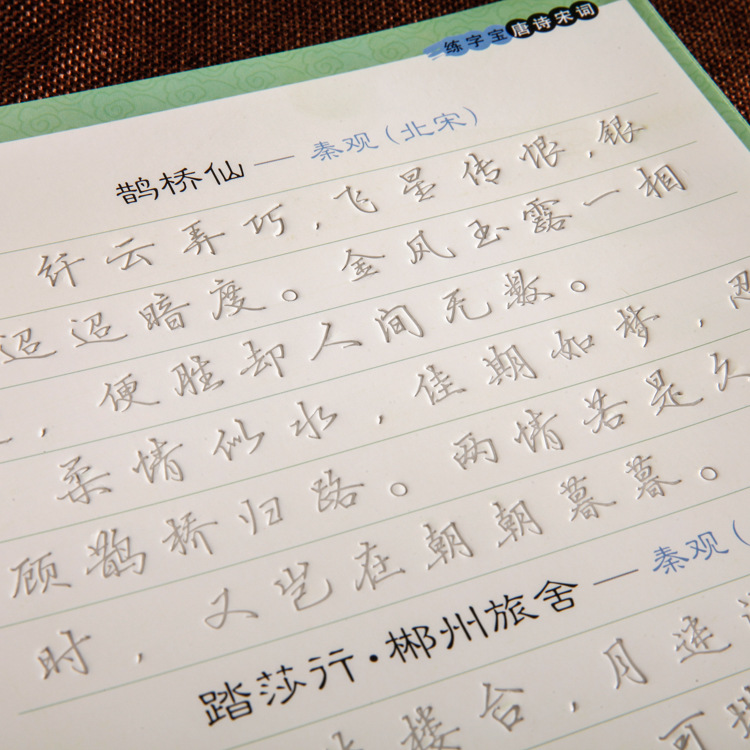 练字宝唐诗宋词
鹊桥仙 — 秦观（北宋）
纤云弄巧，飞星传恨，银
迢迢暗度。金风玉露一相
，便胜却人间无数。
柔情似水，佳期如梦，忍
顾鹊桥归路。两情若是久
时，又岂在朝朝暮暮。
踏莎行·郴州旅舍 — 秦观（
楼台，月迷
可